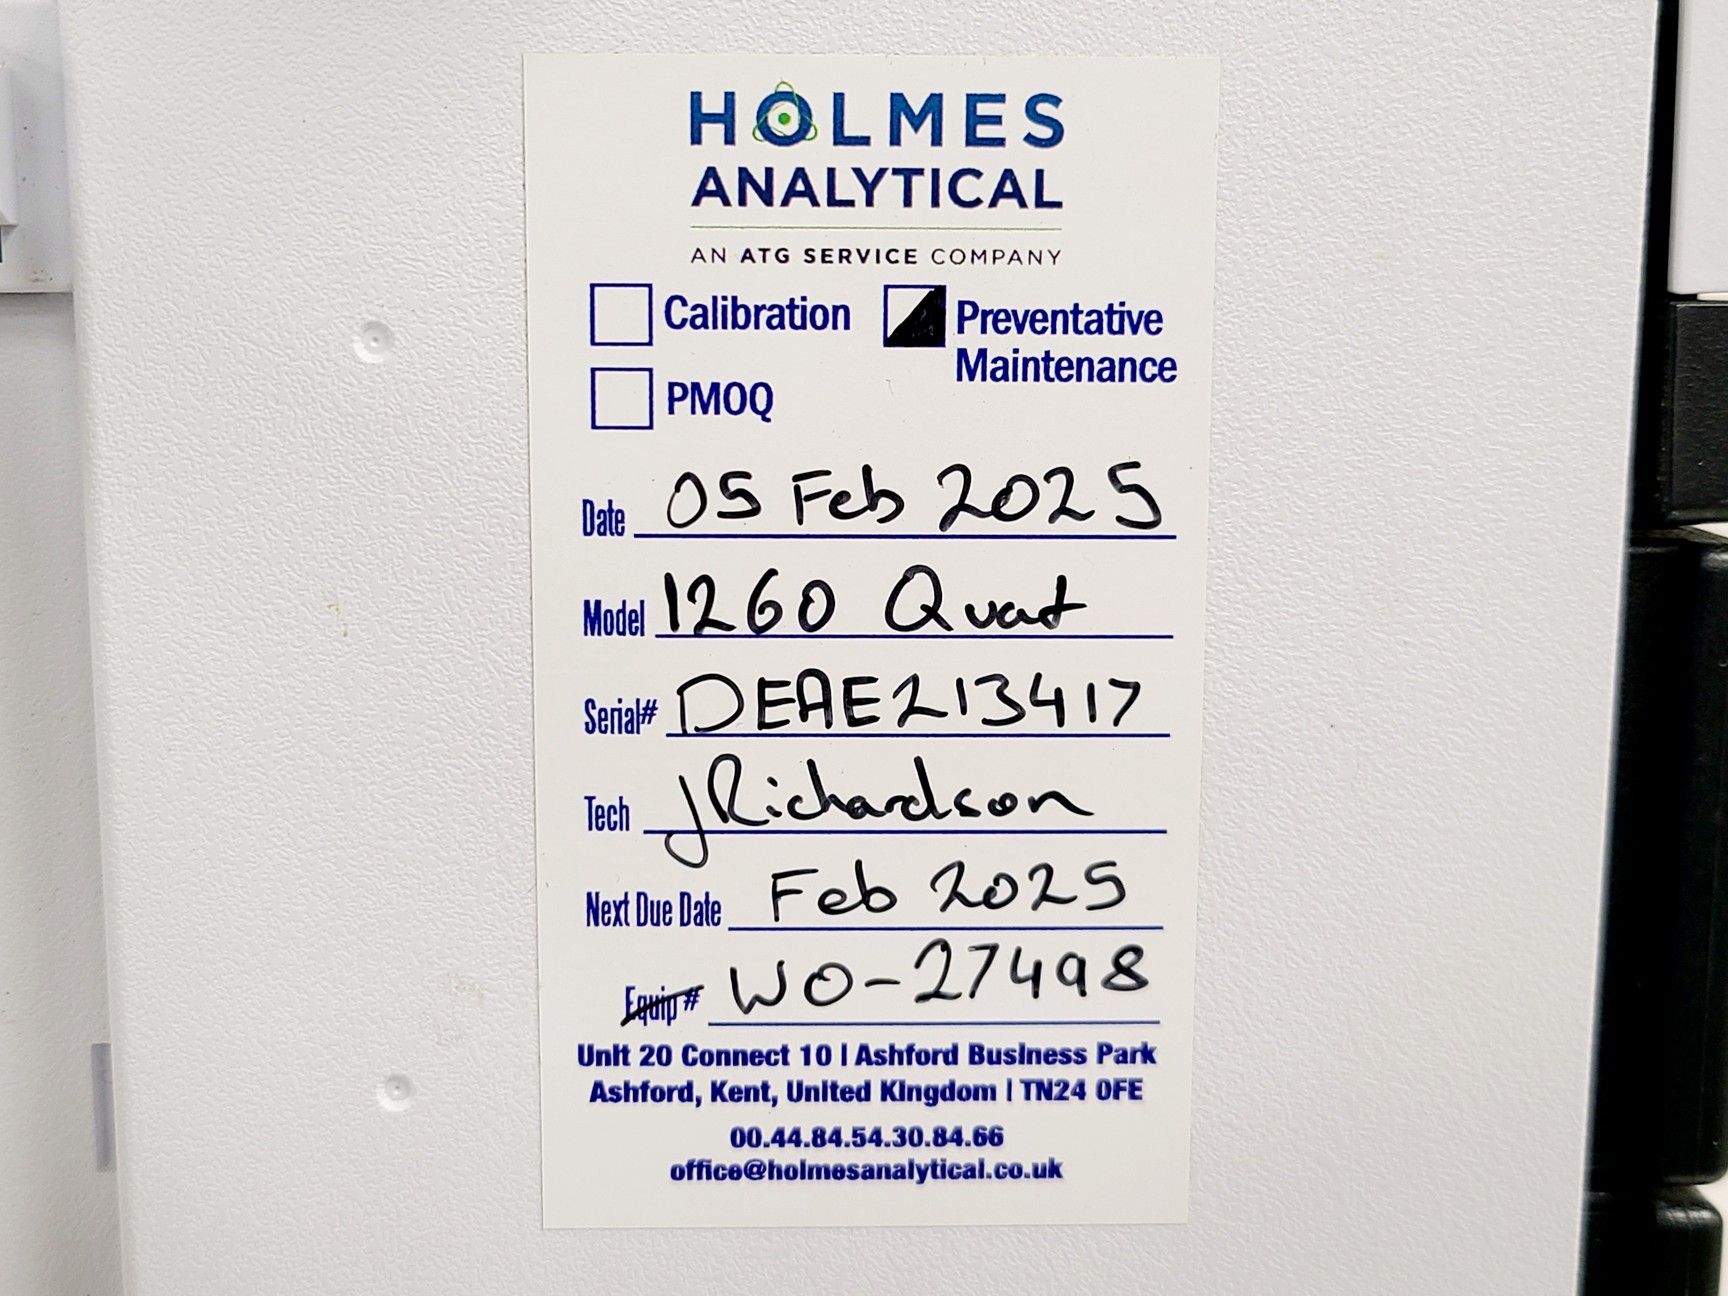 HOLMES
ANALYTICAL
AN ATG SERVICE COMPANY
Calibration Preventative
Maintenance
PMOQ
Date 05 Feb 2025
Model 1260 Quat
Serial# DEAE213417
Tech JRichardson
Next Due Date Feb 2025
Equip # WO-27498
Unit 20 Connect 10 | Ashford Business Park
Ashford, Kent, United Kingdom | TN24 0FE
00.44.84.54.30.84.66
office@holmesanalytical.co.uk